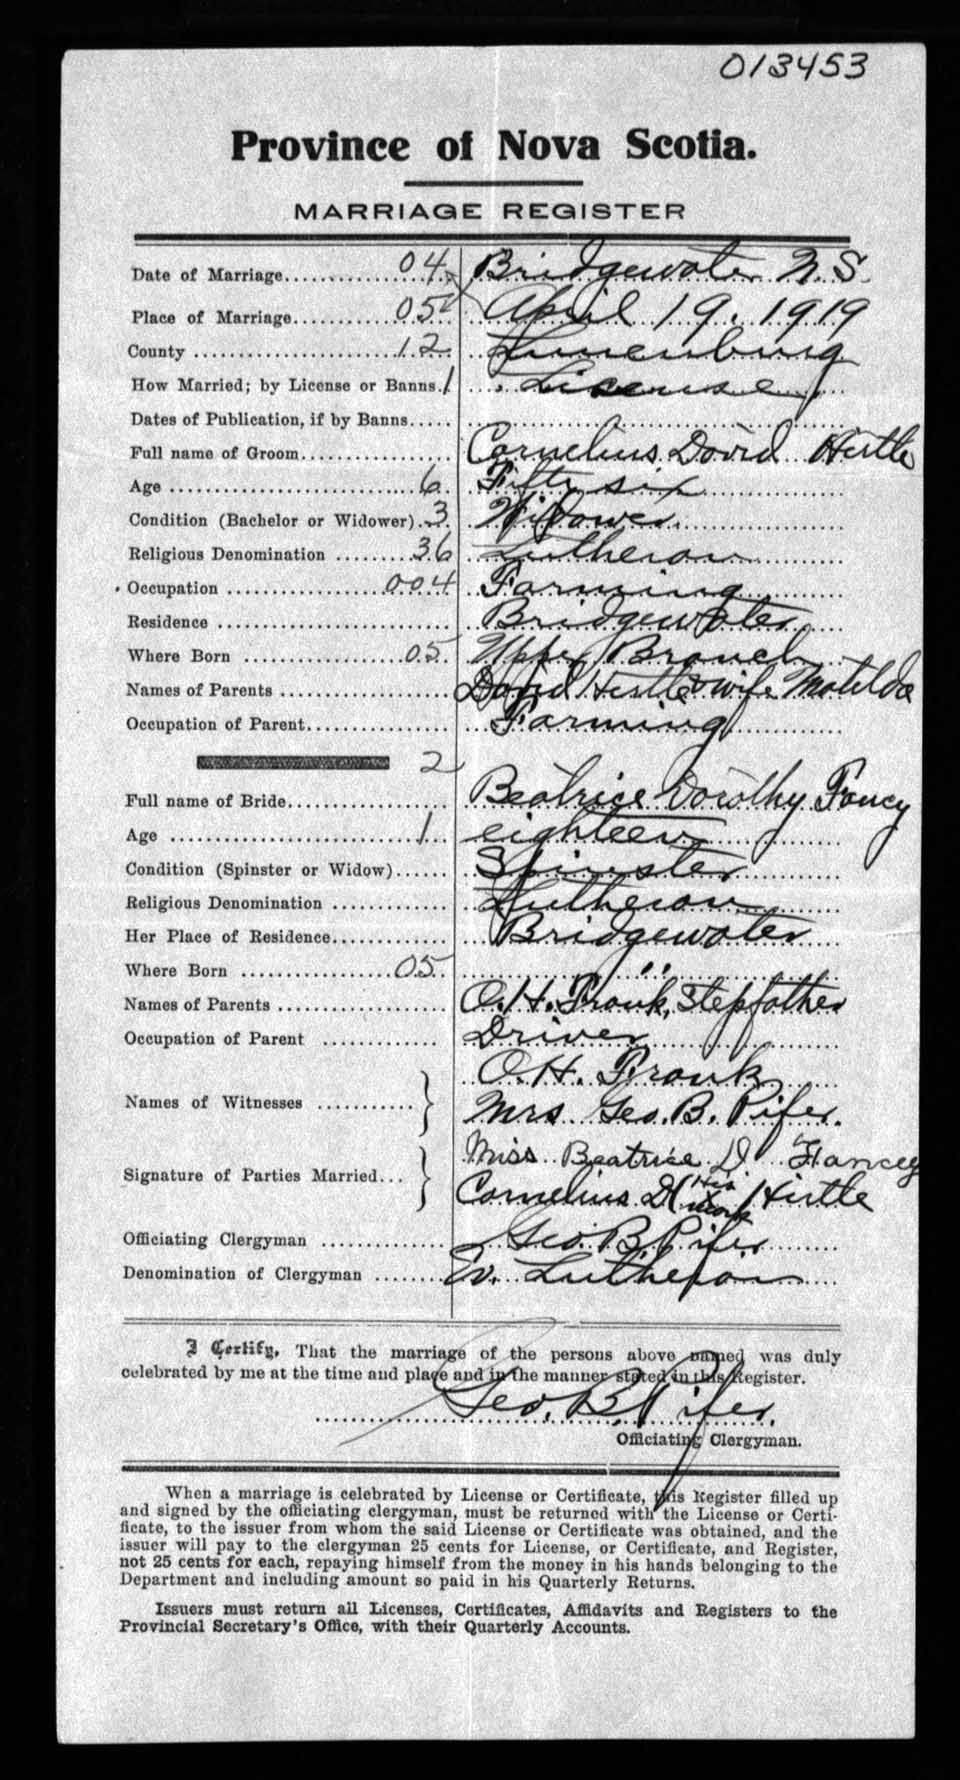 013453
Province of Nova Scotia.
MARRIAGE REGISTER
Date of Marriage.............. 04 Bridgewater N.S.
Place of Marriage............. 05 April 19. 1919
County ....................... 12 Lunenburg
How Married; by License or Banns. 1 License
Dates of Publication, if by Banns.....
Full name of Groom................ Cornelius David Hirtle
Age .......................... 6 Fifty six
Condition (Bachelor or Widower). 3 Widower
Religious Denomination ........ 36 Lutheran
Occupation ................... 004 Farming
Residence ........................ Bridgewater
Where Born ................... 05 Upper Branch
Names of Parents ................. David Hirtle & wife Matilda
Occupation of Parent.............. Farming
2
Full name of Bride................ Beatrice Dorothy Fancy
Age .......................... 1 eighteen
Condition (Spinster or Widow)...... Spinster
Religious Denomination ............ Lutheran
Her Place of Residence............. Bridgewater
Where Born ................... 05 "
Names of Parents .................. O.H. Frank, Stepfather
Occupation of Parent .............. Driver
O.H. Frank
Names of Witnesses ............ } Mrs. Geo. B. Pifer.
Miss Beatrice D Fancey
Signature of Parties Married... } Cornelius D (His X Mark) Hirtle
Officiating Clergyman ............. Geo. B. Pifer
Denomination of Clergyman ........ Ev. Lutheran
I Certify, That the marriage of the persons above named was duly
celebrated by me at the time and place and in the manner stated in this Register.
Geo. B. Pifer.
Officiating Clergyman.
When a marriage is celebrated by License or Certificate, this Register filled up
and signed by the officiating clergyman, must be returned with the License or Certi-
ficate, to the issuer from whom the said License or Certificate was obtained, and the
issuer will pay to the clergyman 25 cents for License, or Certificate, and Register,
not 25 cents for each, repaying himself from the money in his hands belonging to the
Department and including amount so paid in his Quarterly Returns.
Issuers must return all Licenses, Certificates, Affidavits and Registers to the
Provincial Secretary's Office, with their Quarterly Accounts.